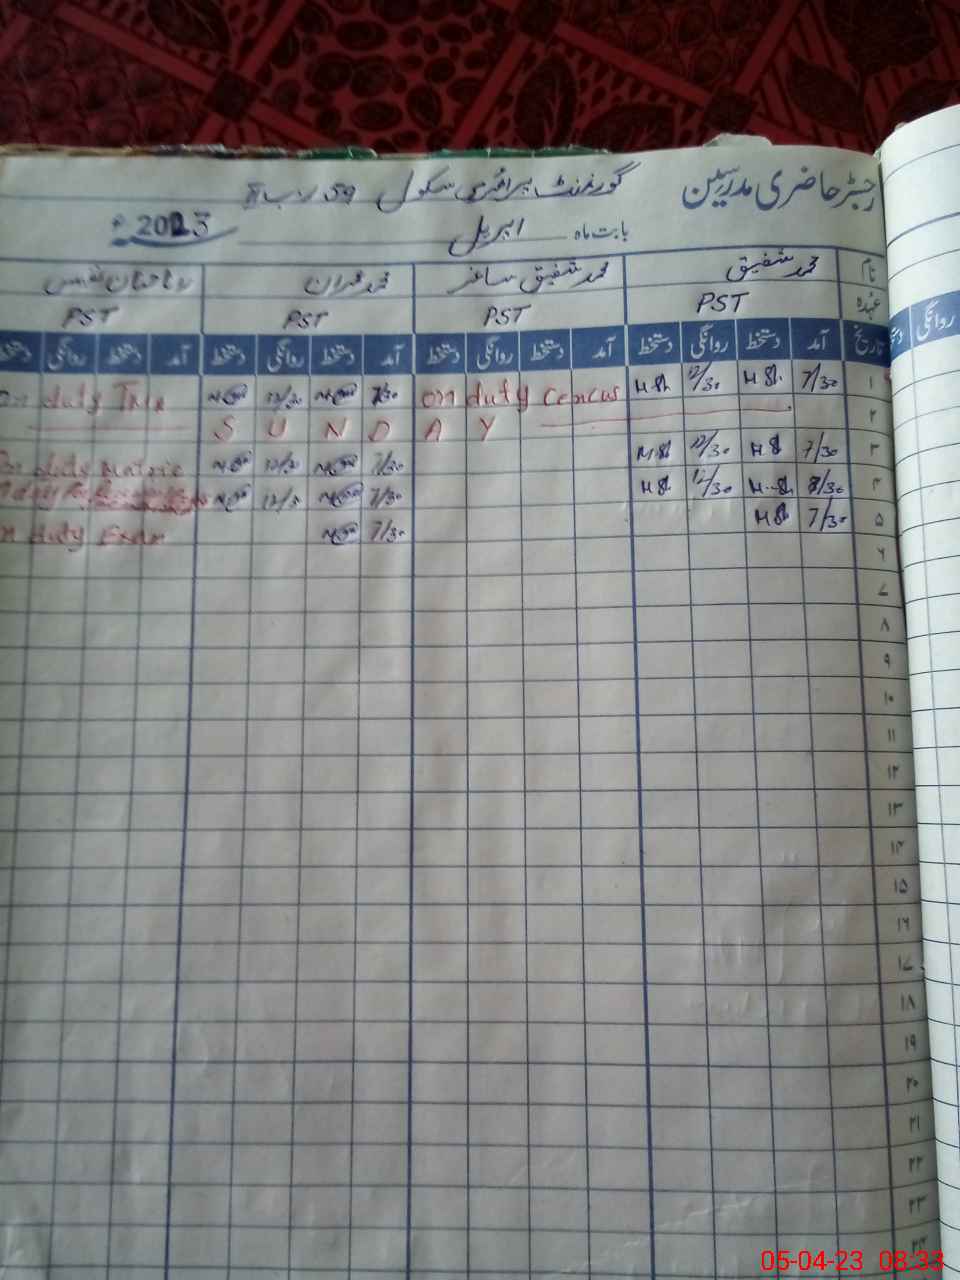 رجسٹر حاضری مدرسین گورنمنٹ پرائمری سکول 59 ر ب II
بابت ماہ اپریل 2023ء
نام محمد شفیق محمد شفیق ساغر محمد عمران
عہدہ PST PST PST PST
تاریخ آمد دستخط روانگی دستخط آمد دستخط روانگی دستخط آمد دستخط روانگی دستخط آمد دستخط روانگی
روانگی
۱ 7/30 M.Sh. 12/30 M.Sh. on duty Cencus 7/30 12/30 on duty
۲ S U N D A Y
۳ 7/30 M.Sh 12/30 M.Sh 7/30 12/30 on duty Matric
۴ 7/30 M.Sh. 12/30 M.Sh 7/30 duty
۵ 7/30 M.Sh 7/30 on duty Exam
۶
۷
۸
۹
۱۰
۱۱
۱۲
۱۳
۱۴
۱۵
۱۶
۱۷
۱۸
۱۹
۲۰
۲۱
۲۲
۲۳
۲۴
05-04-23 08:33